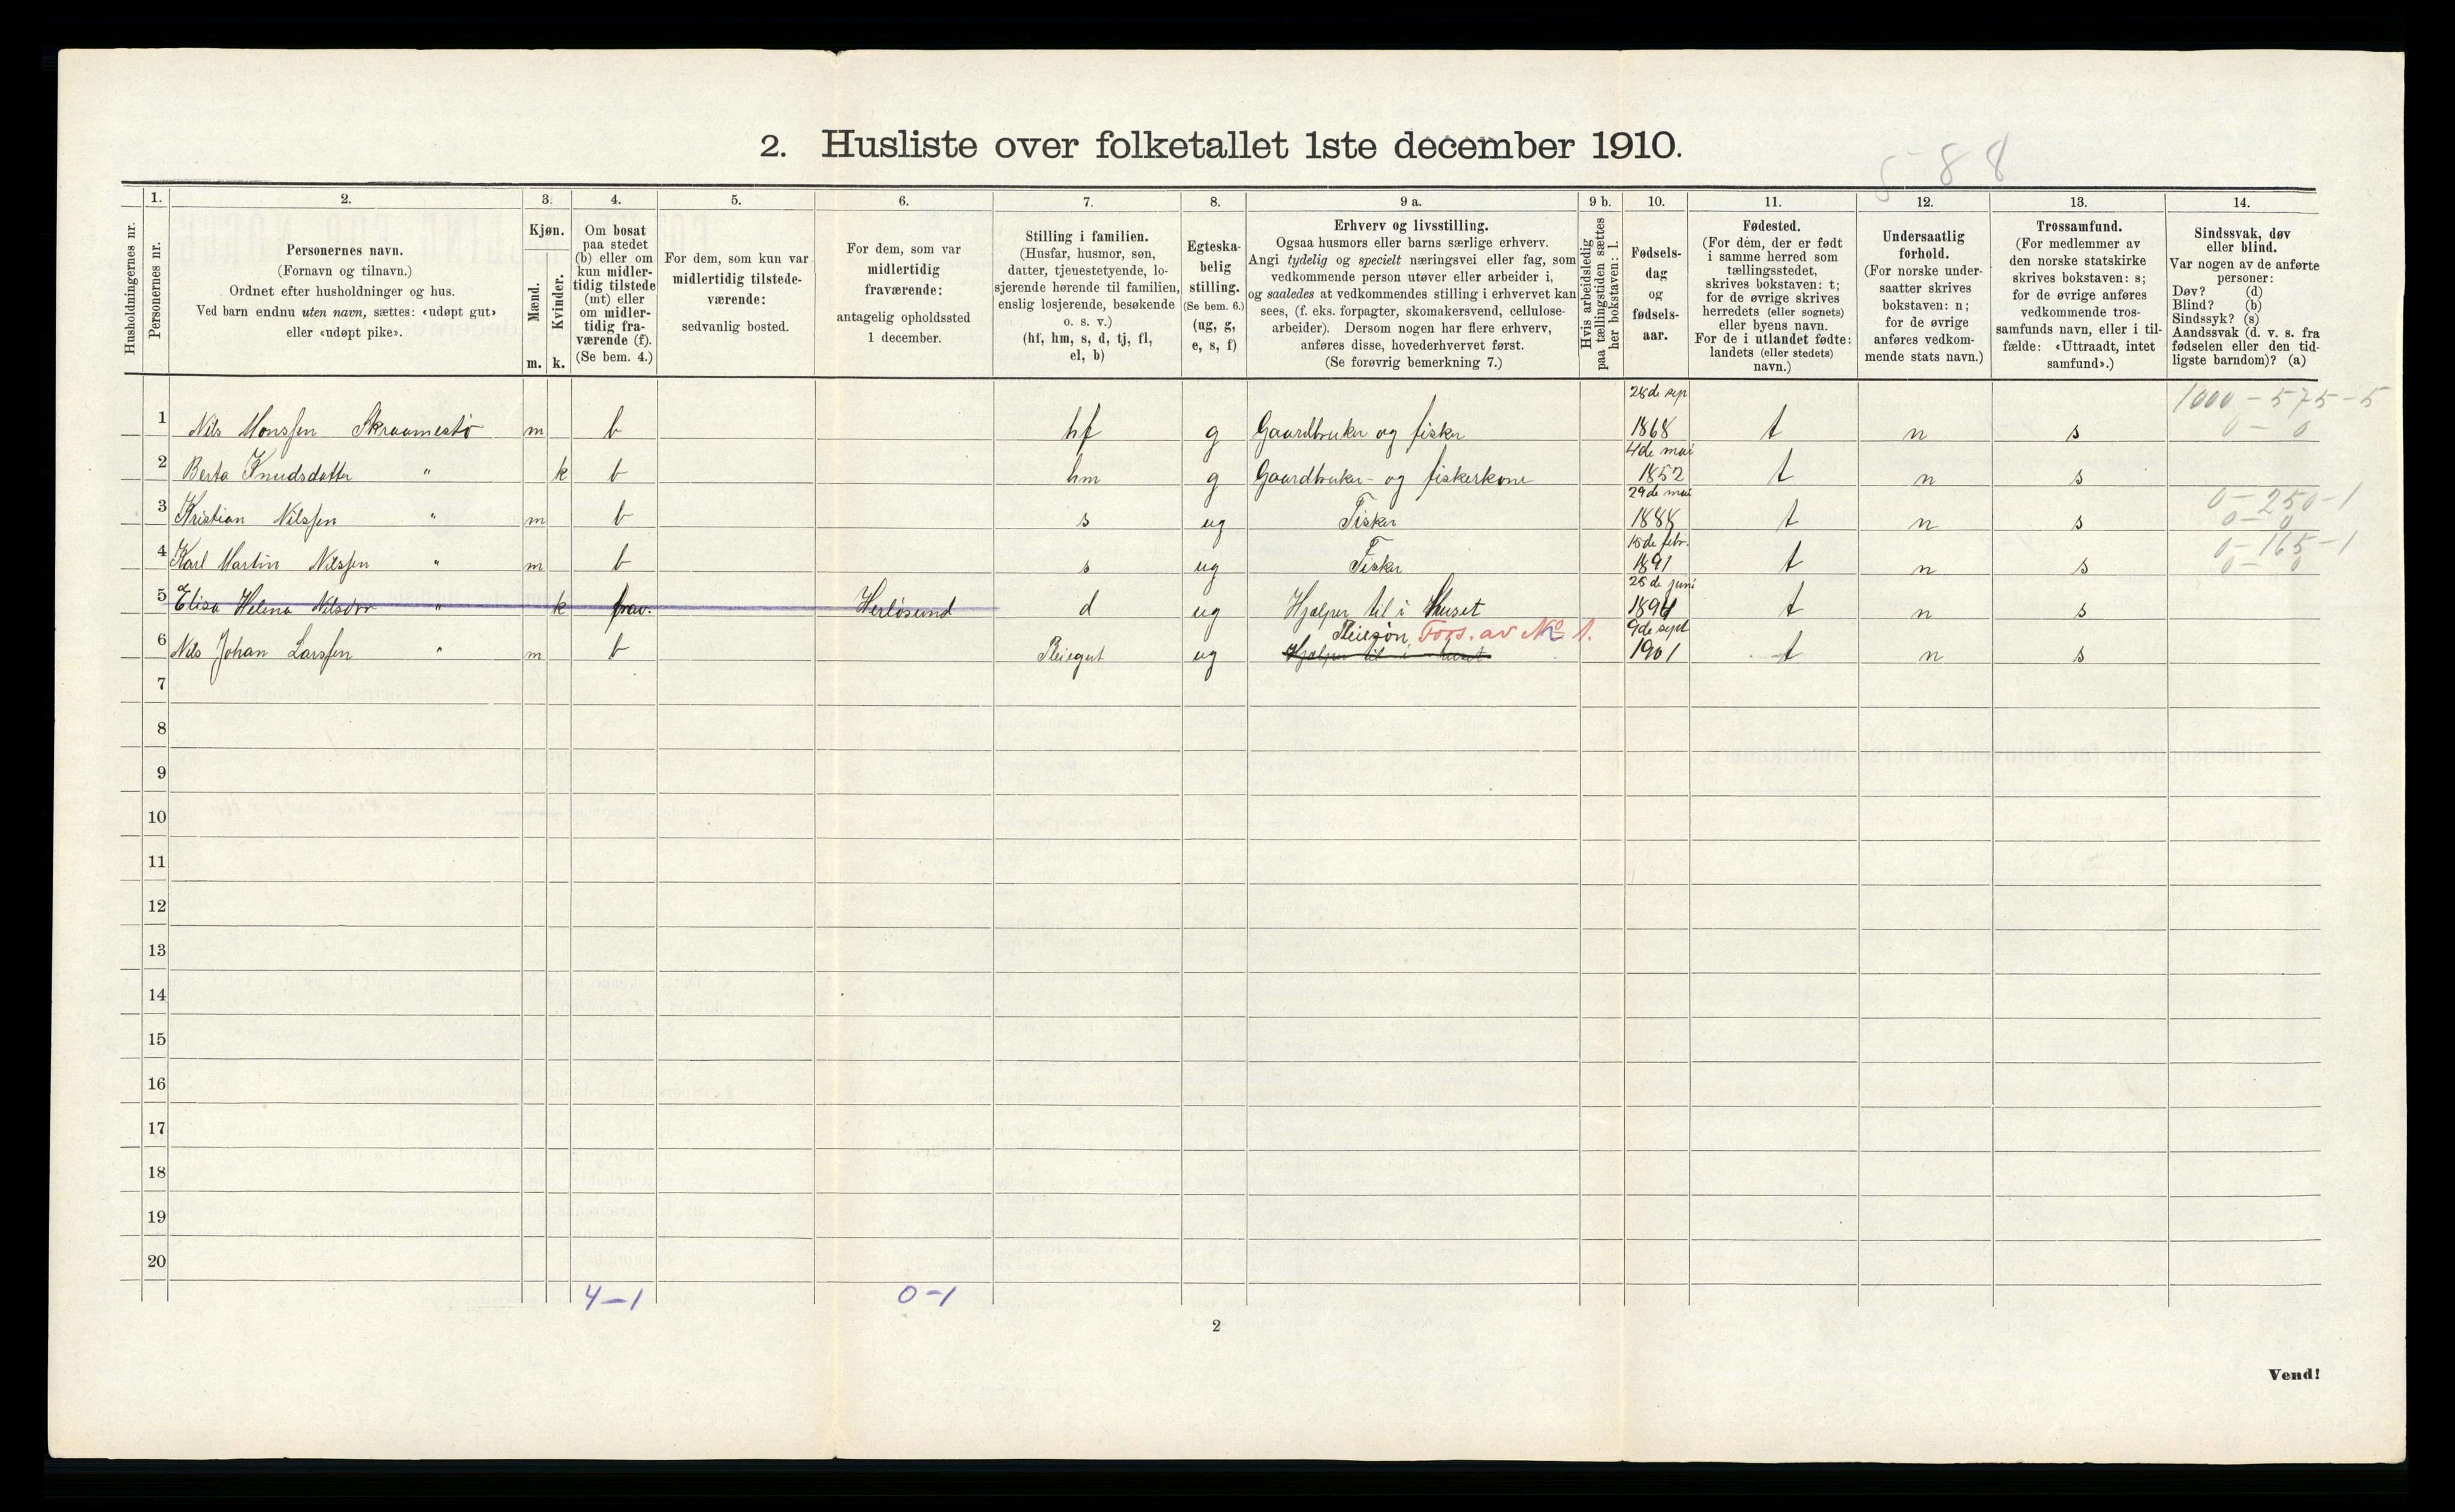 2. Husliste over folketallet 1ste december 1910.
5-88
Husholdningernes nr.
1. Personernes nr.
2. Personernes navn.
(Fornavn og tilnavn.)
Ordnet efter husholdninger og hus.
Ved barn endnu uten navn, sættes: «udøpt gut»
eller «udøpt pike».
3. Kjøn.
Mænd. m.
Kvinder. k.
4. Om bosat
paa stedet
(b) eller om
kun midler-
tidig tilstede
(mt) eller
om midler-
tidig fra-
værende (f).
(Se bem. 4.)
5. For dem, som kun var
midlertidig tilstede-
værende:
sedvanlig bosted.
6. For dem, som var
midlertidig
fraværende:
antagelig opholdssted
1 december.
7. Stilling i familien.
(Husfar, husmor, søn,
datter, tjenestetyende, lo-
sjerende hørende til familien,
enslig losjerende, besøkende
o. s. v.)
(hf, hm, s, d, tj, fl,
el, b)
8. Egteska-
belig
stilling.
(Se bem. 6.)
(ug, g,
e, s, f)
9 a. Erhverv og livsstilling.
Ogsaa husmors eller barns særlige erhverv.
Angi tydelig og specielt næringsvei eller fag, som
vedkommende person utøver eller arbeider i,
og saaledes at vedkommendes stilling i erhvervet kan
sees, (f. eks. forpagter, skomakersvend, cellulose-
arbeider). Dersom nogen har flere erhverv,
anføres disse, hovederhvervet først.
(Se forøvrig bemerkning 7.)
9 b. Hvis arbeidsledig
paa tællingstiden sættes
her bokstaven: l.
10. Fødsels-
dag
og
fødsels-
aar.
11. Fødested.
(For dem, der er født
i samme herred som
tællingsstedet,
skrives bokstaven: t;
for de øvrige skrives
herredets (eller sognets)
eller byens navn.
For de i utlandet fødte:
landets (eller stedets)
navn.)
12. Undersaatlig
forhold.
(For norske under-
saatter skrives
bokstaven: n;
for de øvrige
anføres vedkom-
mende stats navn.)
13. Trossamfund.
(For medlemmer av
den norske statskirke
skrives bokstaven: s;
for de øvrige anføres
vedkommende tros-
samfunds navn, eller i til-
fælde: «Uttraadt, intet
samfund».)
14. Sindssvak, døv
eller blind.
Var nogen av de anførte
personer:
Døv? (d)
Blind? (b)
Sindssyk? (s)
Aandssvak (d. v. s. fra
fødselen eller den tid-
ligste barndom)? (a)
1 Nils Monssen Skraamestø m b hf g Gaardbruker og fisker 28de sep 1868 t n s 1000-575-5
0-0
2 Berta Knudsdatter " k b hm g Gaardbruker- og fiskerkone 4de mai 1852 t n s
3 Kristian Nilssen " m b s ug Fisker 29de mai 1888 t n s 0-250-1
0-0
4 Karl Martin Nilssen " m b s ug Fisker 15de febr. 1891 t n s 0-165-1
0-0
5 Elisa Helena Nilsdtr " k frav. Herløsund d ug Hjælper til i huset 28de juni 1894 t n s
6 Nils Johan Larssen " m b Pleiegut ug Pleiesøn Fors. av No 1. Hjælper til i huset 9de sept 1901 t n s
7
8
9
10
11
12
13
14
15
16
17
18
19
20
4-1
0-1
2
Vend!